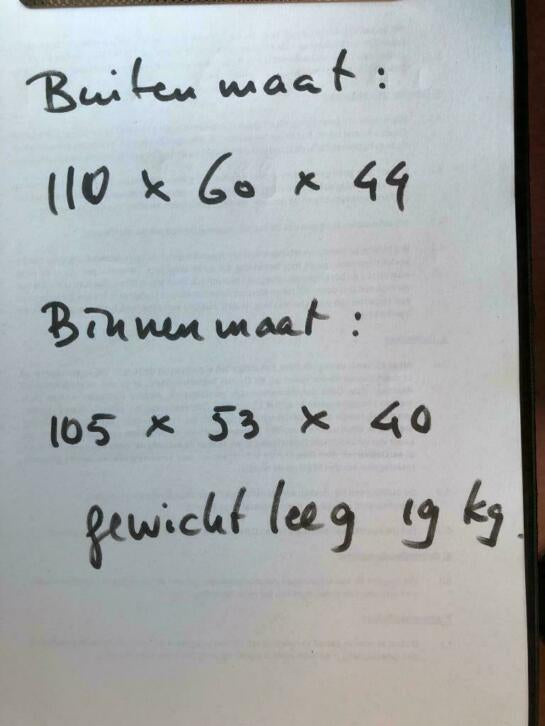 Buitenmaat :
110 x 60 x 44
Binnenmaat :
105 x 53 x 40
gewicht leeg 19 kg.